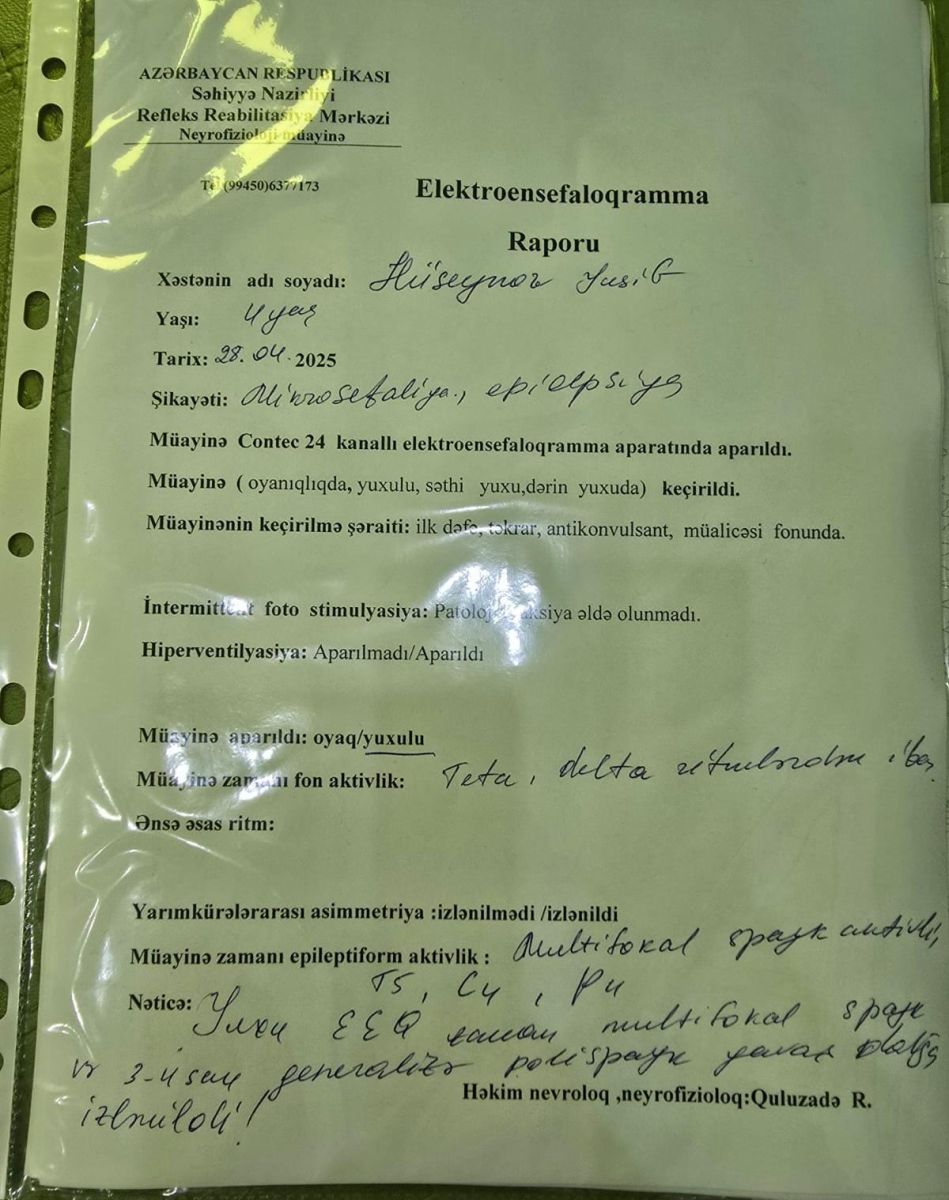 AZƏRBAYCAN RESPUBLİKASI
Səhiyyə Nazirliyi
Refleks Reabilitasiya Mərkəzi
Neyrofizioloji müayinə
Tel (99450)6377173
Elektroensefaloqramma
Raporu
Xəstənin adı soyadı: Hüseynov Yusif
Yaşı: 4 yaş
Tarix: 28.04.2025
Şikayəti: Mikrosefaliya, epilepsiya
Müayinə Contec 24 kanallı elektroensefaloqramma aparatında aparıldı.
Müayinə ( oyanıqlıqda, yuxulu, səthi yuxu,dərin yuxuda) keçirildi.
Müayinənin keçirilmə şəraiti: ilk dəfə, təkrar, antikonvulsant, müalicəsi fonunda.
İntermittent foto stimulyasiya: Patoloji reaksiya əldə olunmadı.
Hiperventilyasiya: Aparılmadı/Aparıldı
Müayinə aparıldı: oyaq/yuxulu
Müayinə zamanı fon aktivlik: Teta, delta ritmlərdən ibar
Ənsə əsas ritm:
Yarımkürələrarası asimmetriya :izlənilmədi /izlənildi
Müayinə zamanı epileptiform aktivlik : Multifokal spayk
T5, C4, P4
Nəticə: EEQ zamanı multifokal spayk
və 3-4 san generalizə polispayk yavaş dalğa
Həkim nevroloq ,neyrofizioloq:Quluzadə R.
izlənildi!